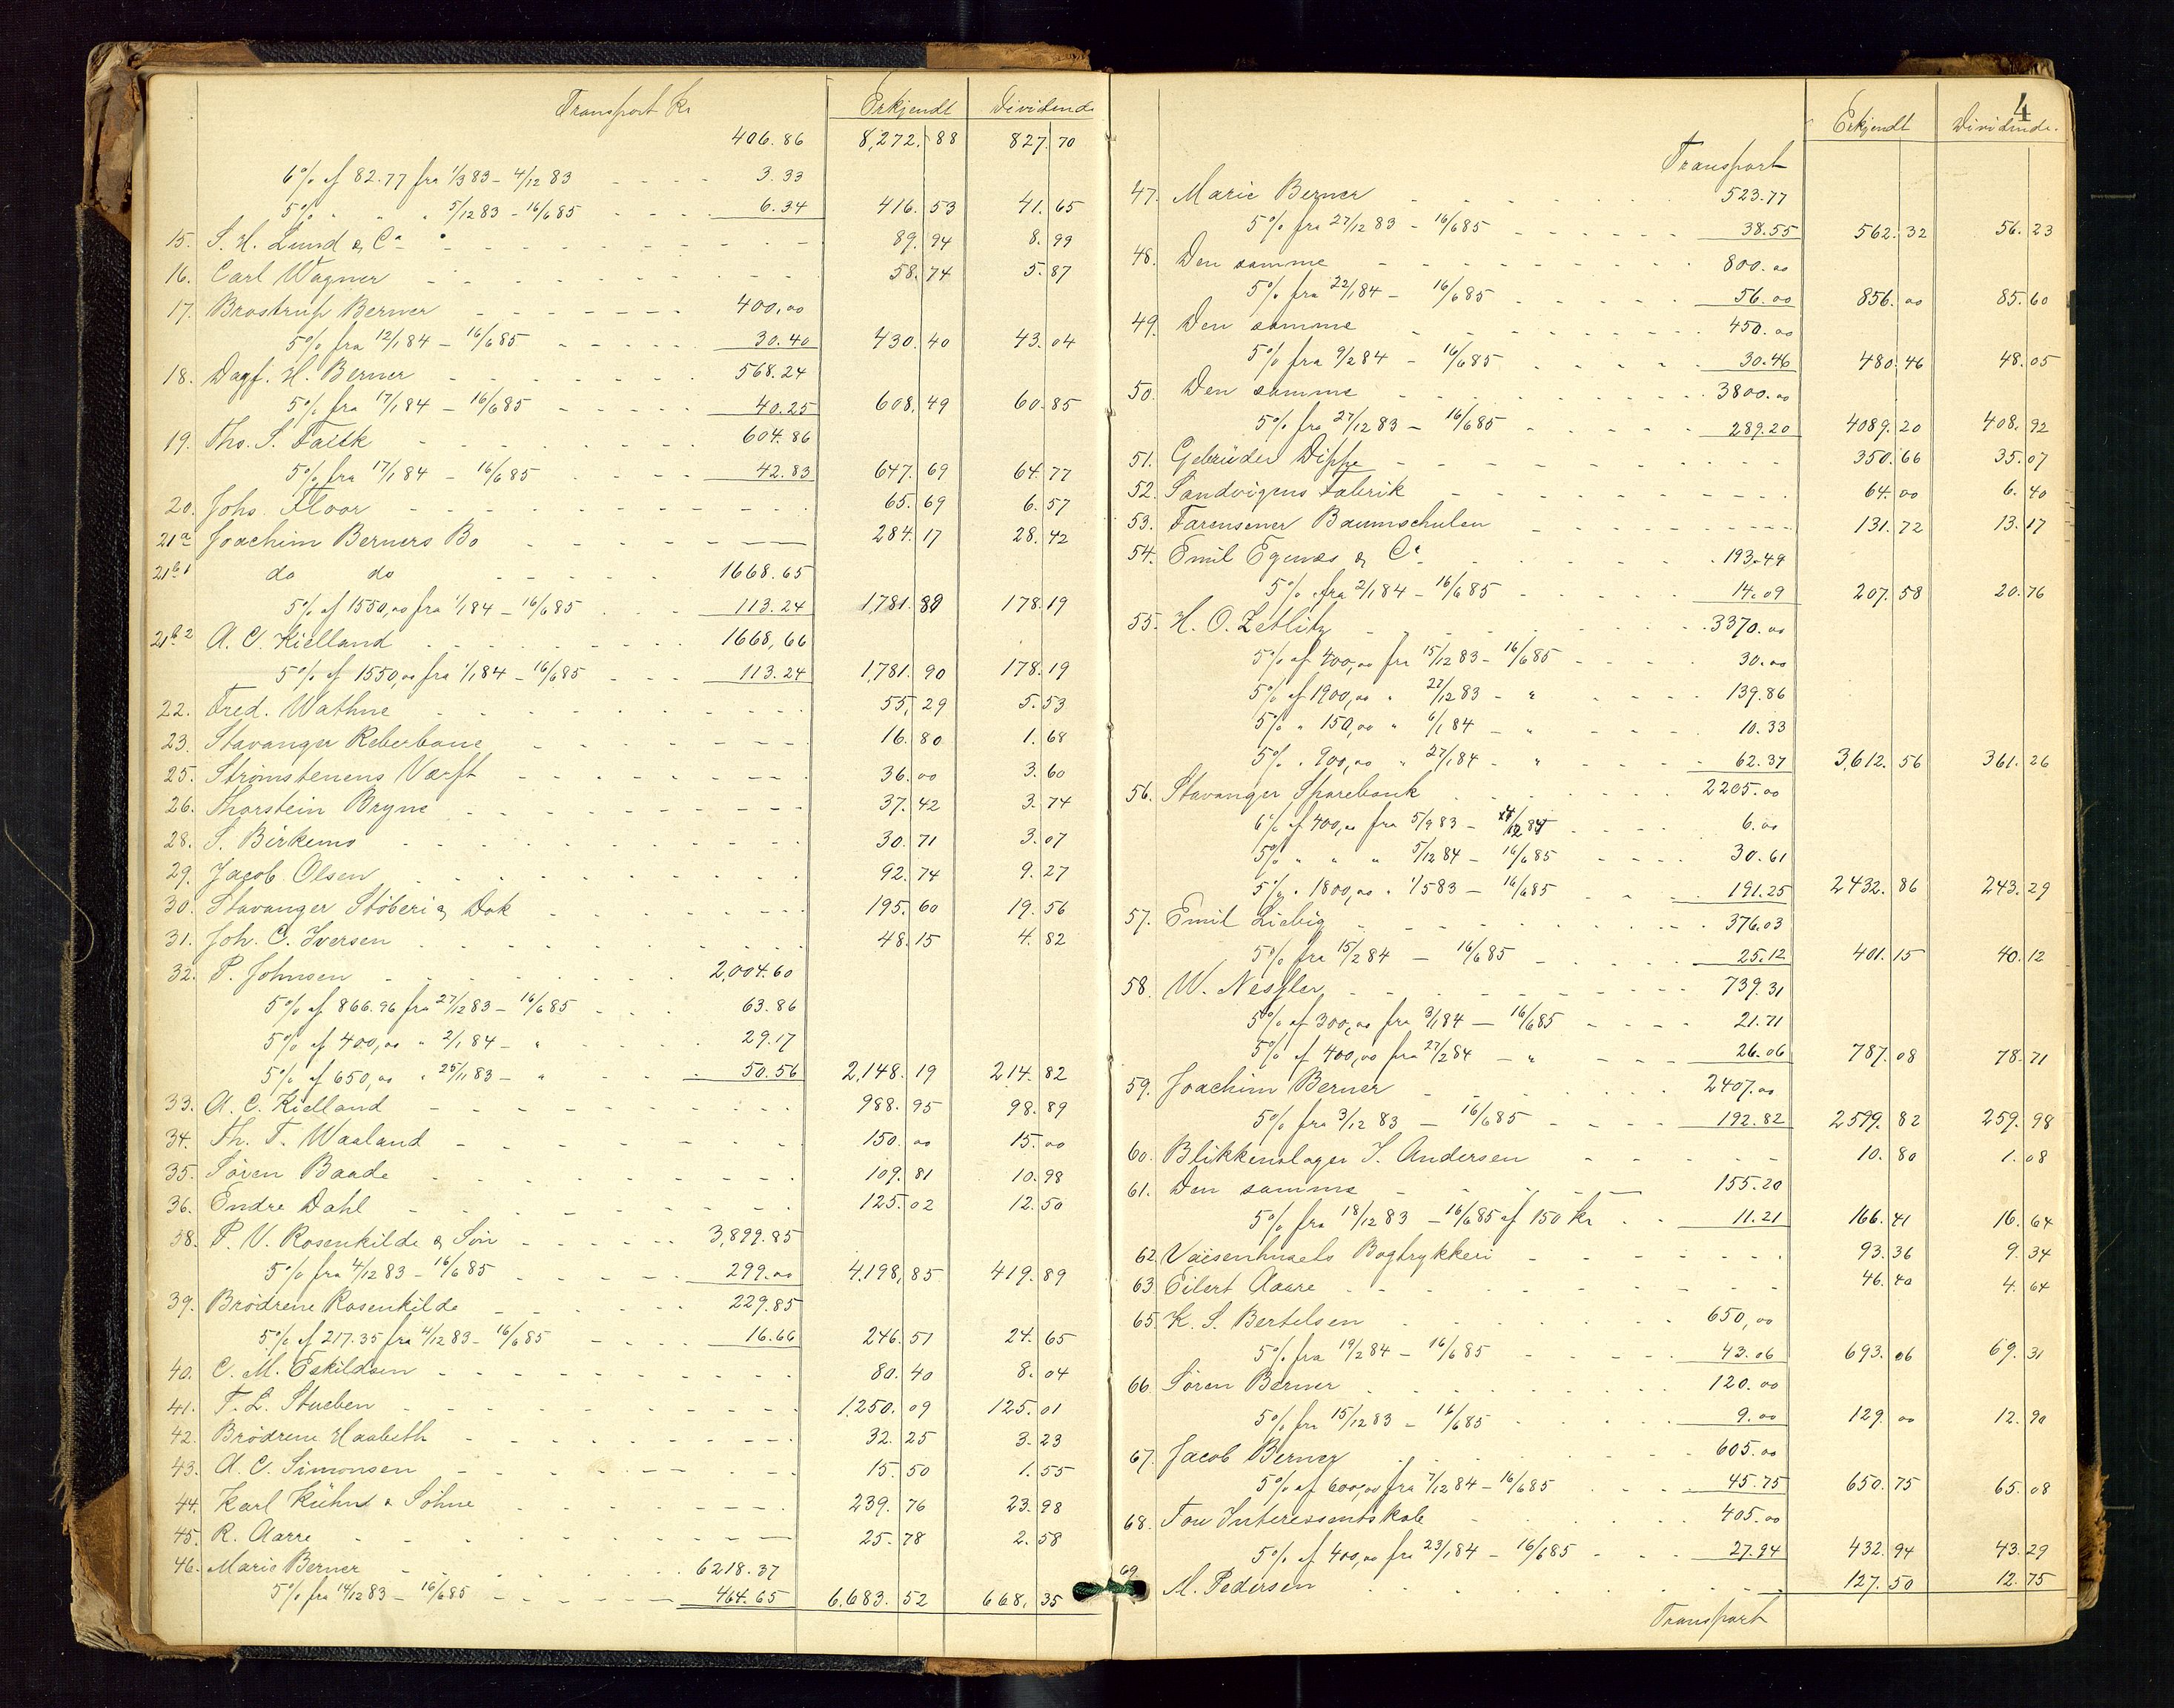 Transport Kr Erkjendt Dividende
406.86 8,272.88 827.70
6% af 82.77 fra 1/3 83 - 4/12 83 3.33
5% " " " 5/12 83 - 16/6 85 6.34 416.53 41.65
15. S. H. Lund & Co 89.94 8.99
16. Carl Wagner 58.74 5.87
17. Brostrup Berner 400,00
5% fra 12/1 84 - 16/6 85 30.40 430.40 43.04
18. Dagf. H. Berner 568.24
5% fra 17/1 84 - 16/6 85 40.25 608.49 60.85
19. Ths. S. Falck 604.86
5% fra 17/1 84 - 16/6 85 42.83 647.69 64.77
20. Johs. Floor 65.69 6.57
21a Joachim Berners Bo 284.17 28.42
21b1 do do 1668.65
5% af 1550,00 fra 1/1 84 - 16/6 85 113.24 1,781.89 178.19
21b2 A. C. Kielland 1668,66
5% af 1550,00 fra 1/1 84 - 16/6 85 113.24 1,781.90 178.19
22. Fred. Wathne 55,29 5.53
23. Stavanger Reberbane 16.80 1.68
25. Strømstenens Værft 36.00 3.60
26. Thorstein Bryne 37.42 3.74
28. S. Birkemo 30.71 3.07
29. Jacob Olsen 92.74 9.27
30. Stavanger Støberi & Dok 195.60 19.56
31. Joh. C. Iversen 48.15 4.82
32. P. Johnsen 2,004.60
5% af 866.96 fra 27/12 83 - 16/6 85 63.86
5% af 400,00 " 2/1 84 - " 29.17
5% af 650,00 " 25/11 83 - " 50.56 2,148.19 214.82
33. A. C. Kielland 988.95 98.89
34. Th. T. Waaland 150.00 15.00
35. Søren Baade 109.81 10.98
36. Endre Dahl 125.02 12.50
38. P. V. Rosenkilde & Søn 3,899.85
5% fra 4/12 83 - 16/6 85 299.00 4,198,85 419.89
39. Brødrene Rosenkilde 229.85
5% af 217.35 fra 4/12 83 - 16/6 85 16.66 246.51 24.65
40. C. M. Eskildsen 80.40 8.04
41. T. L. Stueben 1250.09 125.01
42. Brødrene Haabeth 32.25 3.23
43. A. C. Simonsen 15.50 1.55
44. Karl Kühne & Söhne 239.76 23.98
45. R. Aarre 25.78 2.58
46. Marie Berner 6218.37
5% fra 14/12 83 - 16/6 85 464.65 6,683.52 668,35
4
Erkjendt Dividende.
Transport
47. Marie Berner 523.77
5% fra 27/12 83 - 16/6 85 38.55 562.32 56.23
48. Den samme 800.00
5% fra 22/1 84 - 16/6 85 56.00 856.00 85.60
49. Den samme 450.00
5% fra 9/2 84 - 16/6 85 30.46 480.46 48.05
50. Den samme 3800.00
5% fra 27/12 83 - 16/6 85 289.20 4089.20 408.92
51. Gebrüder Dippe 350.66 35.07
52. Sandvigens Fabrik 64.00 6.40
53. Farensener Baumschulen 131.72 13.17
54. Emil Egenæs & Co 193.49
5% fra 2/1 84 - 16/6 85 14.09 207.58 20.76
55. H. O. Zetlitz 3370.00
5% af 400,00 fra 15/12 83 - 16/6 85 30.00
5% af 1900,00 " 27/12 83 - " 139.86
5% " 150,00 " 6/1 84 - " 10.33
5% " 900,00 " 27/1 84 - " 62.37 3,612.56 361.26
56. Stavanger Sparebank 2205.00
6% af 400,00 fra 5/9 83 - 4/12 84 6.00
5% " " " 5/12 84 - 16/6 85 30.61
5% " 1800,00 " 1/5 83 - 16/6 85 191.25 2432.86 243.29
57. Emil Liebig 376.03
5% fra 15/2 84 - 16/6 85 25.12 401.15 40.12
58. W. Nessler 739.31
5% af 300,00 fra 3/1 84 - 16/6 85 21.71
5% af 400,00 fra 27/2 84 - " 26.06 787.08 78.71
59. Joachim Berner 2407.00
5% fra 3/12 83 - 16/6 85 192.82 2599.82 259.98
60. Blikkenslager S. Andersen 10.80 1.08
61. Den samme 155.20
5% fra 18/12 83 - 16/6 85 af 150 Kr 11.21 166.41 16.64
62. Vaisenhusets Bogtrykkeri 93.36 9.34
63. Eilert Aarre 46.40 4.64
65. K. S. Bertelsen 650,00
5% fra 19/2 84 - 16/6 85 43.06 693.06 69.31
66. Søren Berner 120.00
5% fra 15/12 83 - 16/6 85 9.00 129.00 12.90
67. Jacob Berner 605.00
5% af 600,00 fra 7/12 84 - 16/6 85 45.75 650.75 65.08
68. Tou Interessentskab 405.00
5% af 400,00 fra 23/1 84 - 16/6 85 27.94 432.94 43.29
69. M. Pedersen 127.50 12.75
Transport